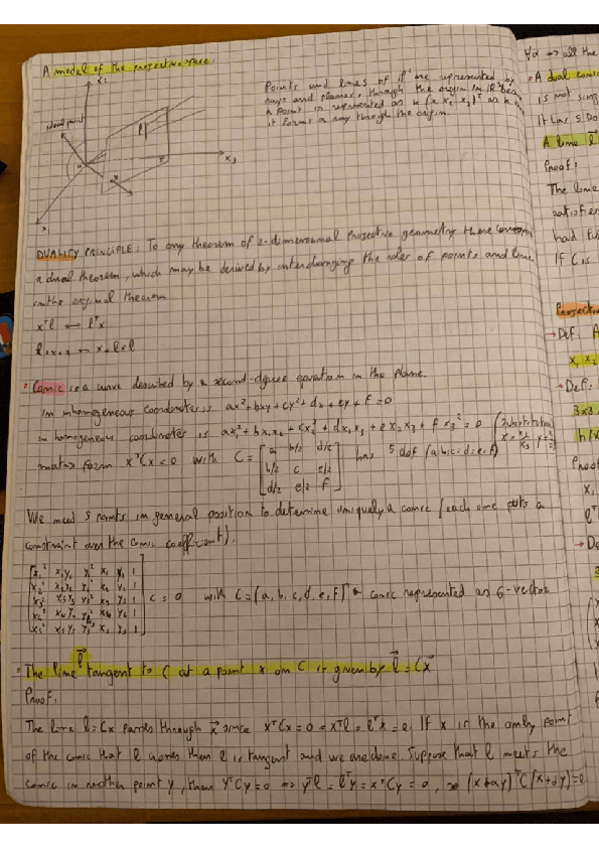 A model of the projective space
Points and lines of P² are represented by
rays and planes, through the origin in R³
a point is represented as k(x₁ x₂ x₃)ᵀ as k
it forms a ray through the origin
ideal point
l
x
x₃
DUALITY PRINCIPLE: To any theorem of 2-dimensional projective geometry there
a dual theorem, which may be derived by interchanging the roles of points and line
in the original theorem
xᵀl ↔ lᵀx
• Conic is a curve described by a second-degree equation in the plane.
in inhomogeneous coordinates is ax²+bxy+cy²+dx+ey+f=0
in homogeneous coordinates is ax₁²+bx₁x₂+cx₂²+dx₁x₃+ex₂x₃+fx₃²=0
matrix form xᵀCx=0 with C= [a b/2 d/2
b/2 c e/2
d/2 e/2 f] has 5 dof (a:b:c:d:e:f)
We need 5 points in general position to determine uniquely a conic (each one puts a
constraint over the conic coefficient).
[x₁² x₁y₁ y₁² x₁ y₁ 1
x₂² x₂y₂ y₂² x₂ y₂ 1
x₃² x₃y₃ y₃² x₃ y₃ 1
x₄² x₄y₄ y₄² x₄ y₄ 1
x₅² x₅y₅ y₅² x₅ y₅ 1] c = 0 with C=(a,b,c,d,e,f)ᵀ conic represented as 6-vector
• The line l tangent to C at a point x on C is given by l = Cx
Proof:
The line l=Cx passes through x since xᵀCx=0=xᵀl=lᵀx=0. If x is the only point
of the conic that l then l is tangent and we are done. Suppose that l meets the
conic in another point y, then yᵀCy=0 => yᵀl=lᵀy=xᵀCy=0, so (x+αy)ᵀC(x+αy)=0
∀α => all the
• A dual conic
is not sing
It has 5 Do
A line l
Proof:
The line
satisfies
If C is
Projectiv
→ Def: A
x₁ x₂
→ Def:
3x3
Proof
x₁
lᵀ